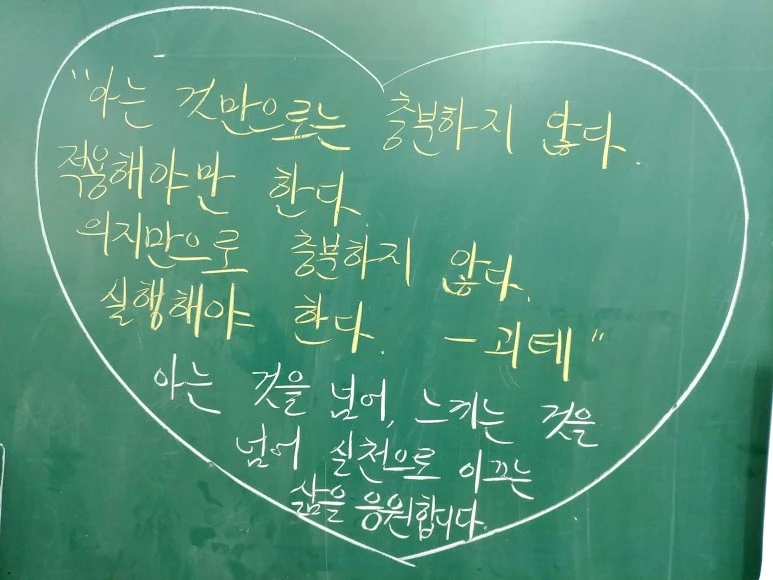 "아는 것만으로는 충분하지 않다.
적용해야만 한다.
의지만으로 충분하지 않다.
실행해야 한다. - 괴테"
아는 것을 넘어, 느끼는 것을
넘어 실천으로 이끄는
삶을 응원합니다.